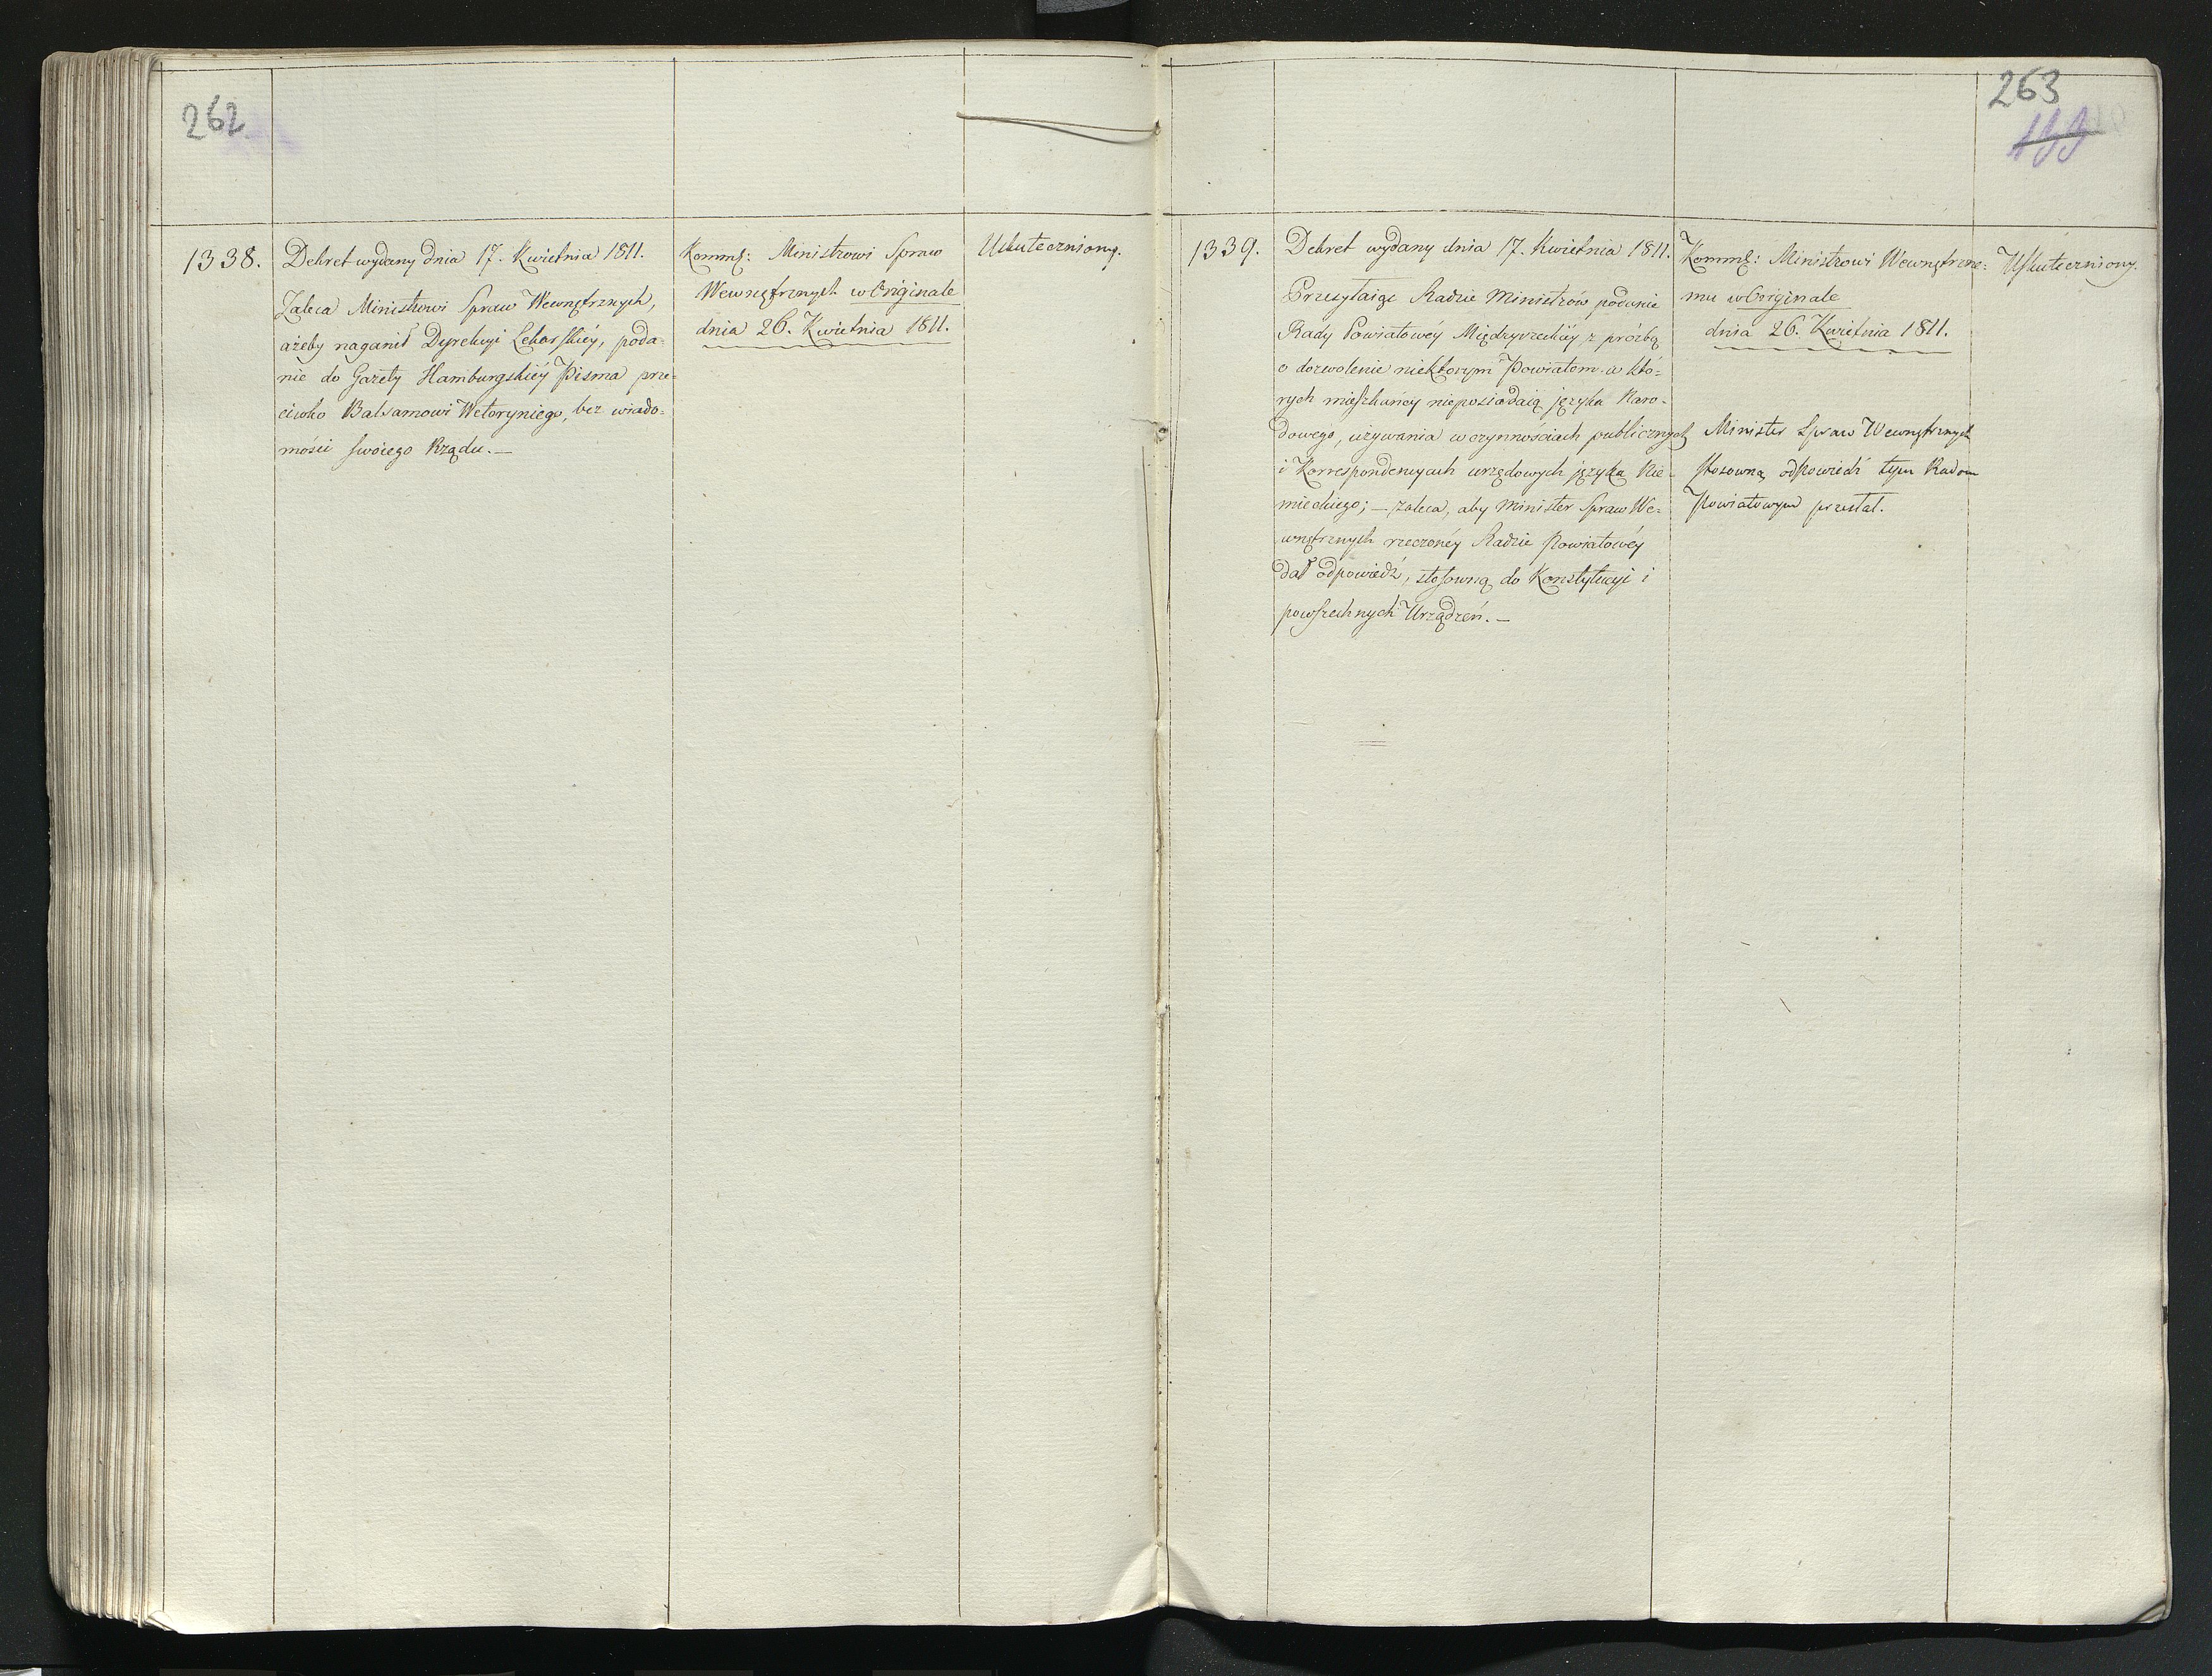 262
1338.
Dekret wydany dnia 17. Kwietnia 1811.
Zaleca Ministrowi Spraw Wewnętrznych,
ażeby naganił Dyrekcyi Lekarskiéy, poda-
nie do Gazety Hamburgskiéy Pisma prze-
ciwko Balsamowi Wetoryniego, bez wiado-
mości swoiego Rządu. —
Kommḡ: Ministrowi Spraw
Wewnętrznych w Originale
dnia 26. Kwietnia 1811.
Uskuteczniony.
263
199
1339.
Dekret wydany dnia 17. Kwietnia 1811.
Przesyłaiąc Radzie Ministrów podanie
Rady Powiatowéy Międzyrzeckiéy z proźbą
o dozwolenie niektorym Powiatom w któ-
rych mieszkańcy nieposiadaią języka Naro-
dowego, używania w czynnościach publicznych
i Korrespondencyach urzędowych języka Nie-
mieckiego; — zaleca, aby Minister Spraw We-
wnętrznych rzeczonéy Radzie Powiatowéy
dał odpowiedź, stosowną do Konstytucyi i
powszechnych Urządzeń. —
Kommḡ: Ministrowi Wewnętrzne-
mu w Originale
dnia 26. Kwietnia 1811.
Minister Spraw Wewnętrznych
stosowną odpowiedź tym Radom
Powiatowym przesłał.
Uskuteczniony.